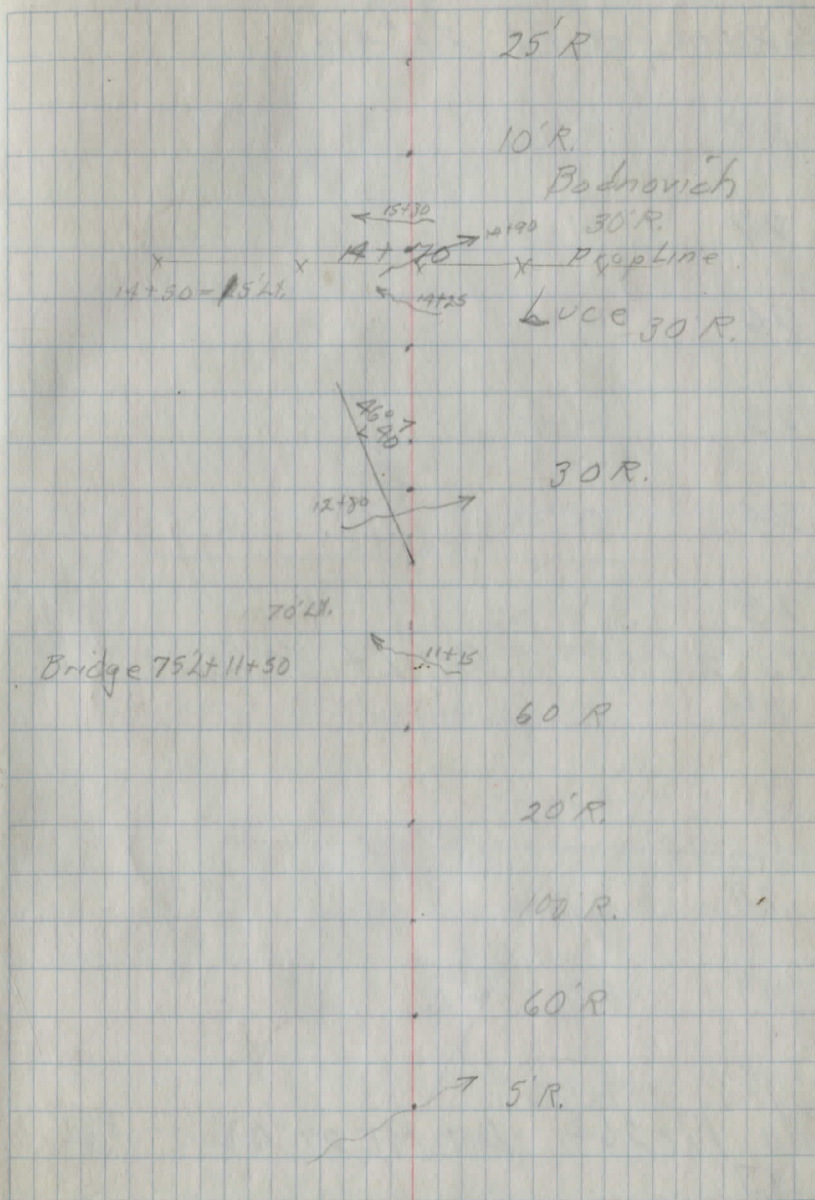 25' R
10' R.
Bodnovich
15+30
30' R.
14+90
14+70
Prop Line
14+50 - 15' Lt.
14+25
Luce 30' R.
45°
<40'
30 R.
12+80
70' Lt.
11+15
Bridge 75 Lt 11+50
60 R
20' R.
100' R.
60' R
5' R.